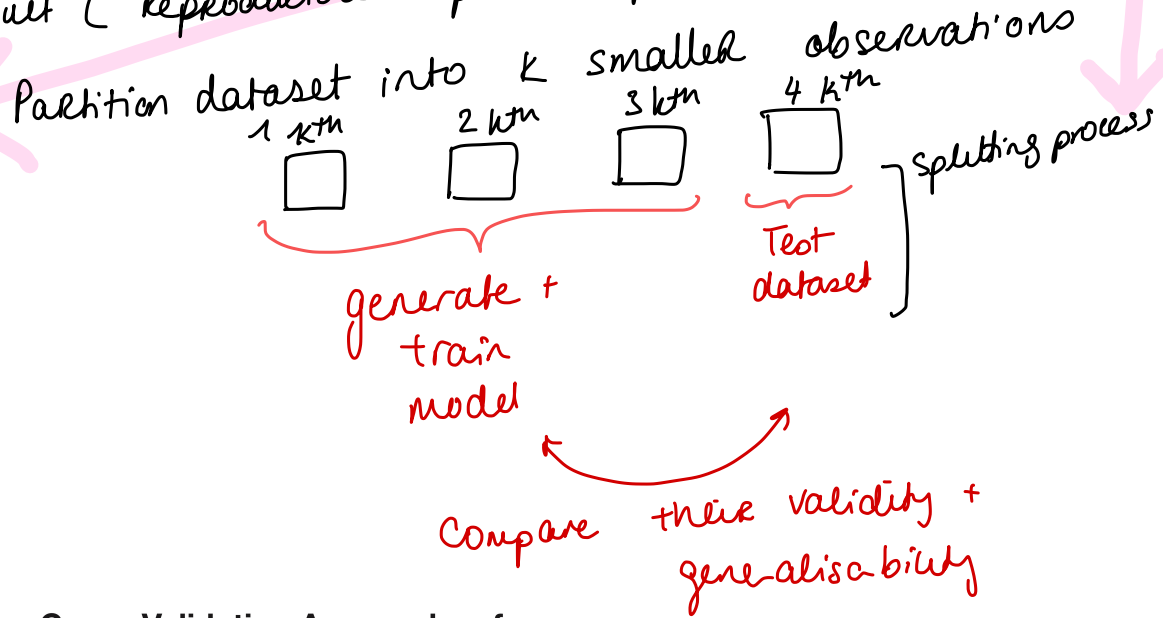 Partition dataset into k smaller observations
1 kth 2 kth 3 kth 4 kth
splitting process
Test
dataset
generate +
train
model
Compare their validity +
generalisability